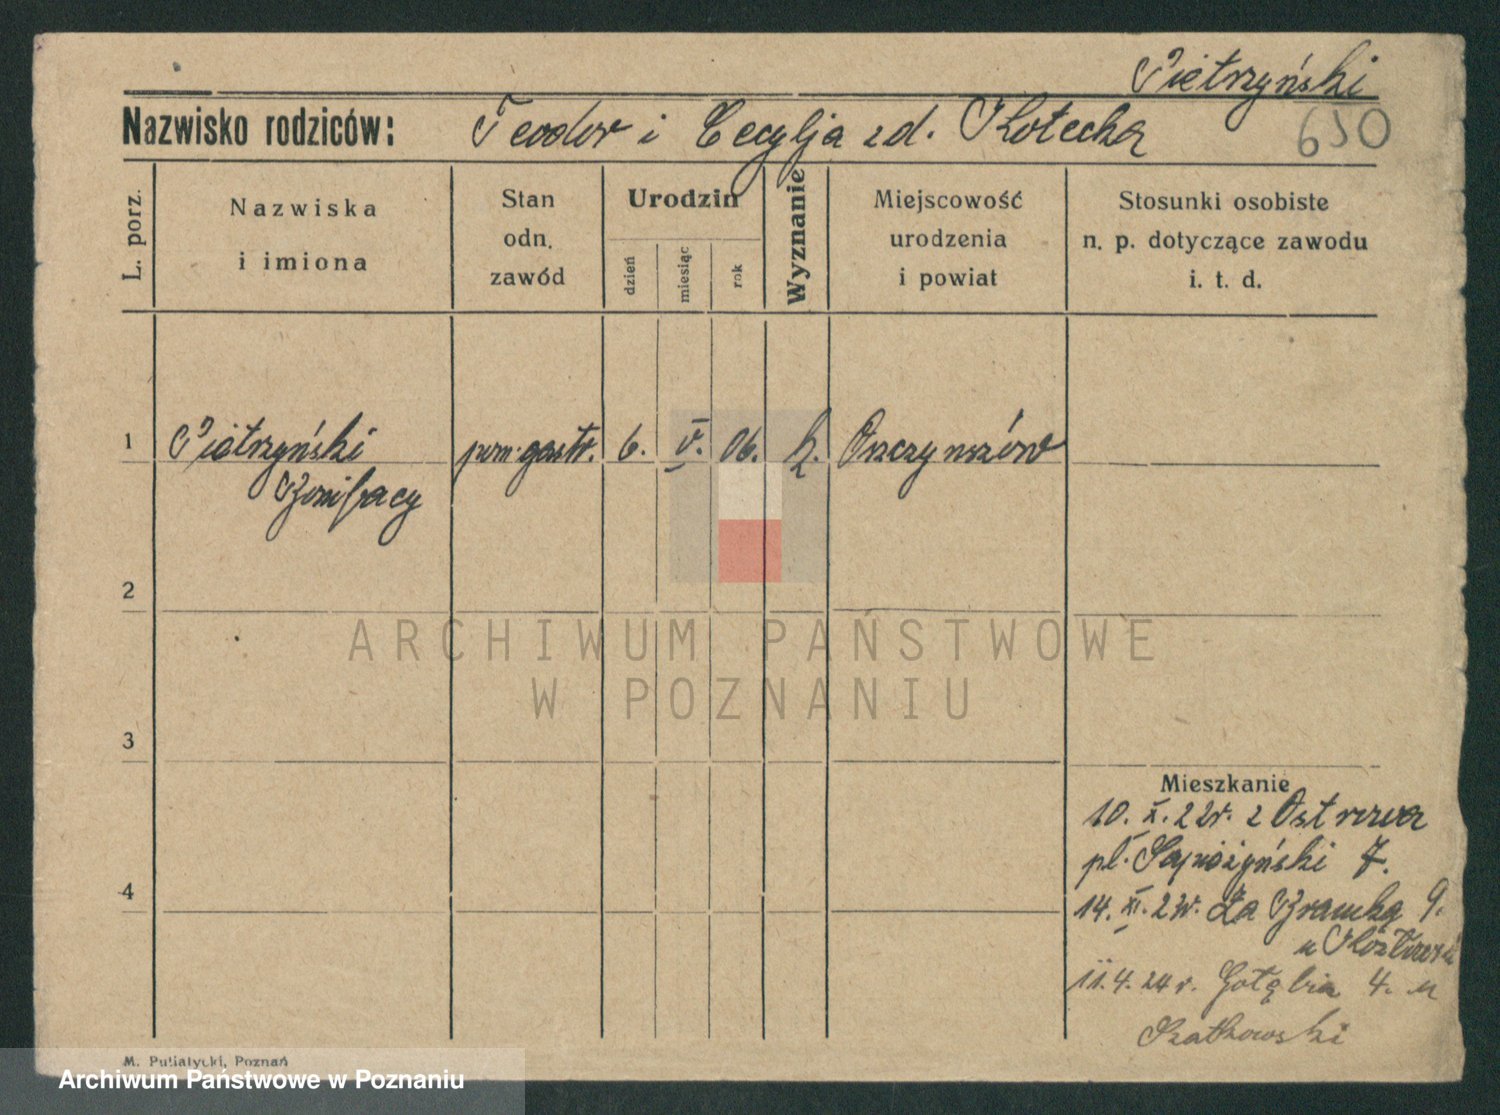 Pietrzyński
Nazwisko rodziców: Teodor i Cecylja zd. Kotecka
650
L. porz.
Nazwiska
i imiona
Stan
odn.
zawód
Urodzin
dzień
miesiąc
rok
Wyznanie
Miejscowość
urodzenia
i powiat
Stosunki osobiste
n. p. dotyczące zawodu
i. t. d.
1 Pietrzyński pom. gastr. 6. V. 06. k.
Bonifacy
2
ARCHIWUM PAŃSTWOWE
W POZNANIU
3
Mieszkanie
10. X. 22r. z Ostrowa
pl. Sapieżyński 7.
4
14. XI. 23r. Za Bramką 9.
u
11.4.24 r. Gołębia 4. u
Szatkowski
M. Putiatycki, Poznań
Archiwum Państwowe w Poznaniu